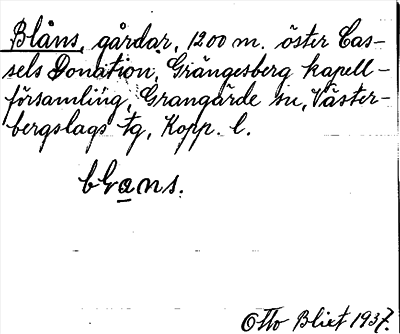 Blåns, gårdar, 1200 m. öster Cas-
sels Donation, Grängesberg kapell-
församling, Grangärde sn, Väster-
bergslags tg, Kopp. l.
blans.
Otto Blixt 1937.